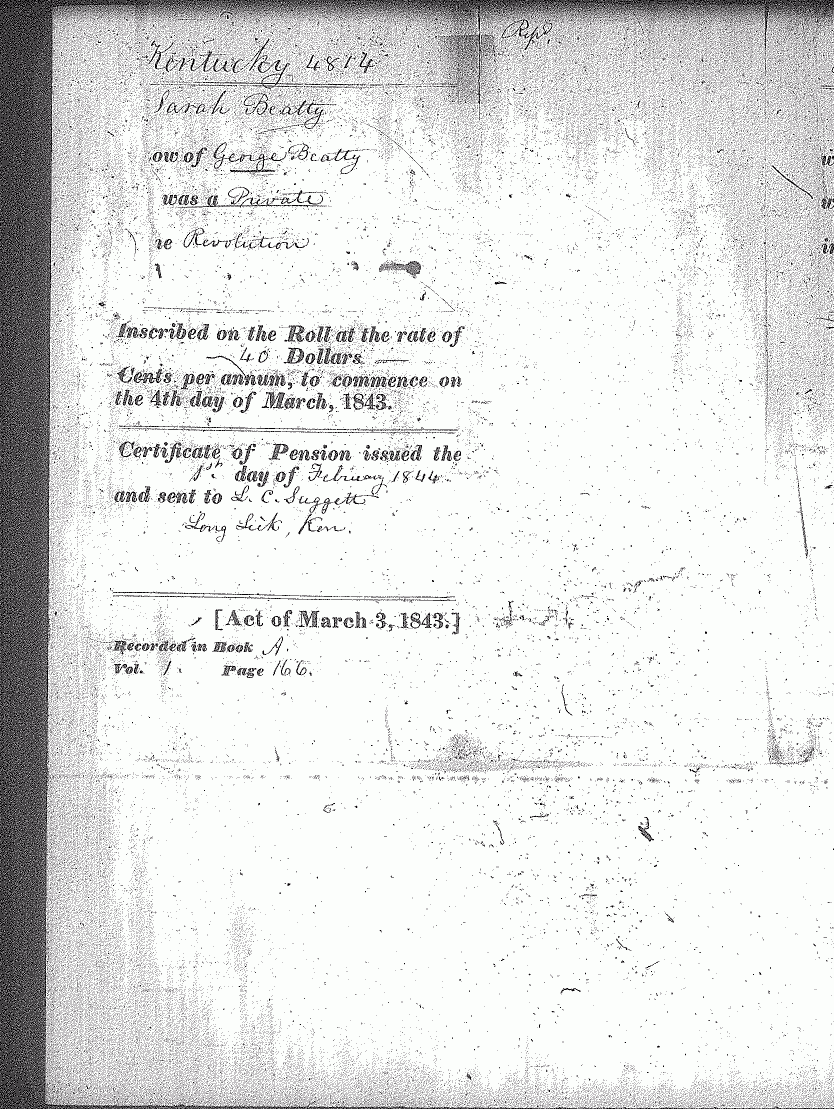 Repd.
Kentucky 4814
Sarah Beatty
ow of George Beatty
was a Private
ie Revolution
Inscribed on the Roll at the rate of
40 Dollars
Cents per annum, to commence on
the 4th day of March, 1843.
Certificate of Pension issued the
1st. day of February 1844
and sent to L. C. Suggett
Long Lick, Ken.
[Act of March 3, 1843.]
Recorded in Book A.
Vol. 1. Page 166.